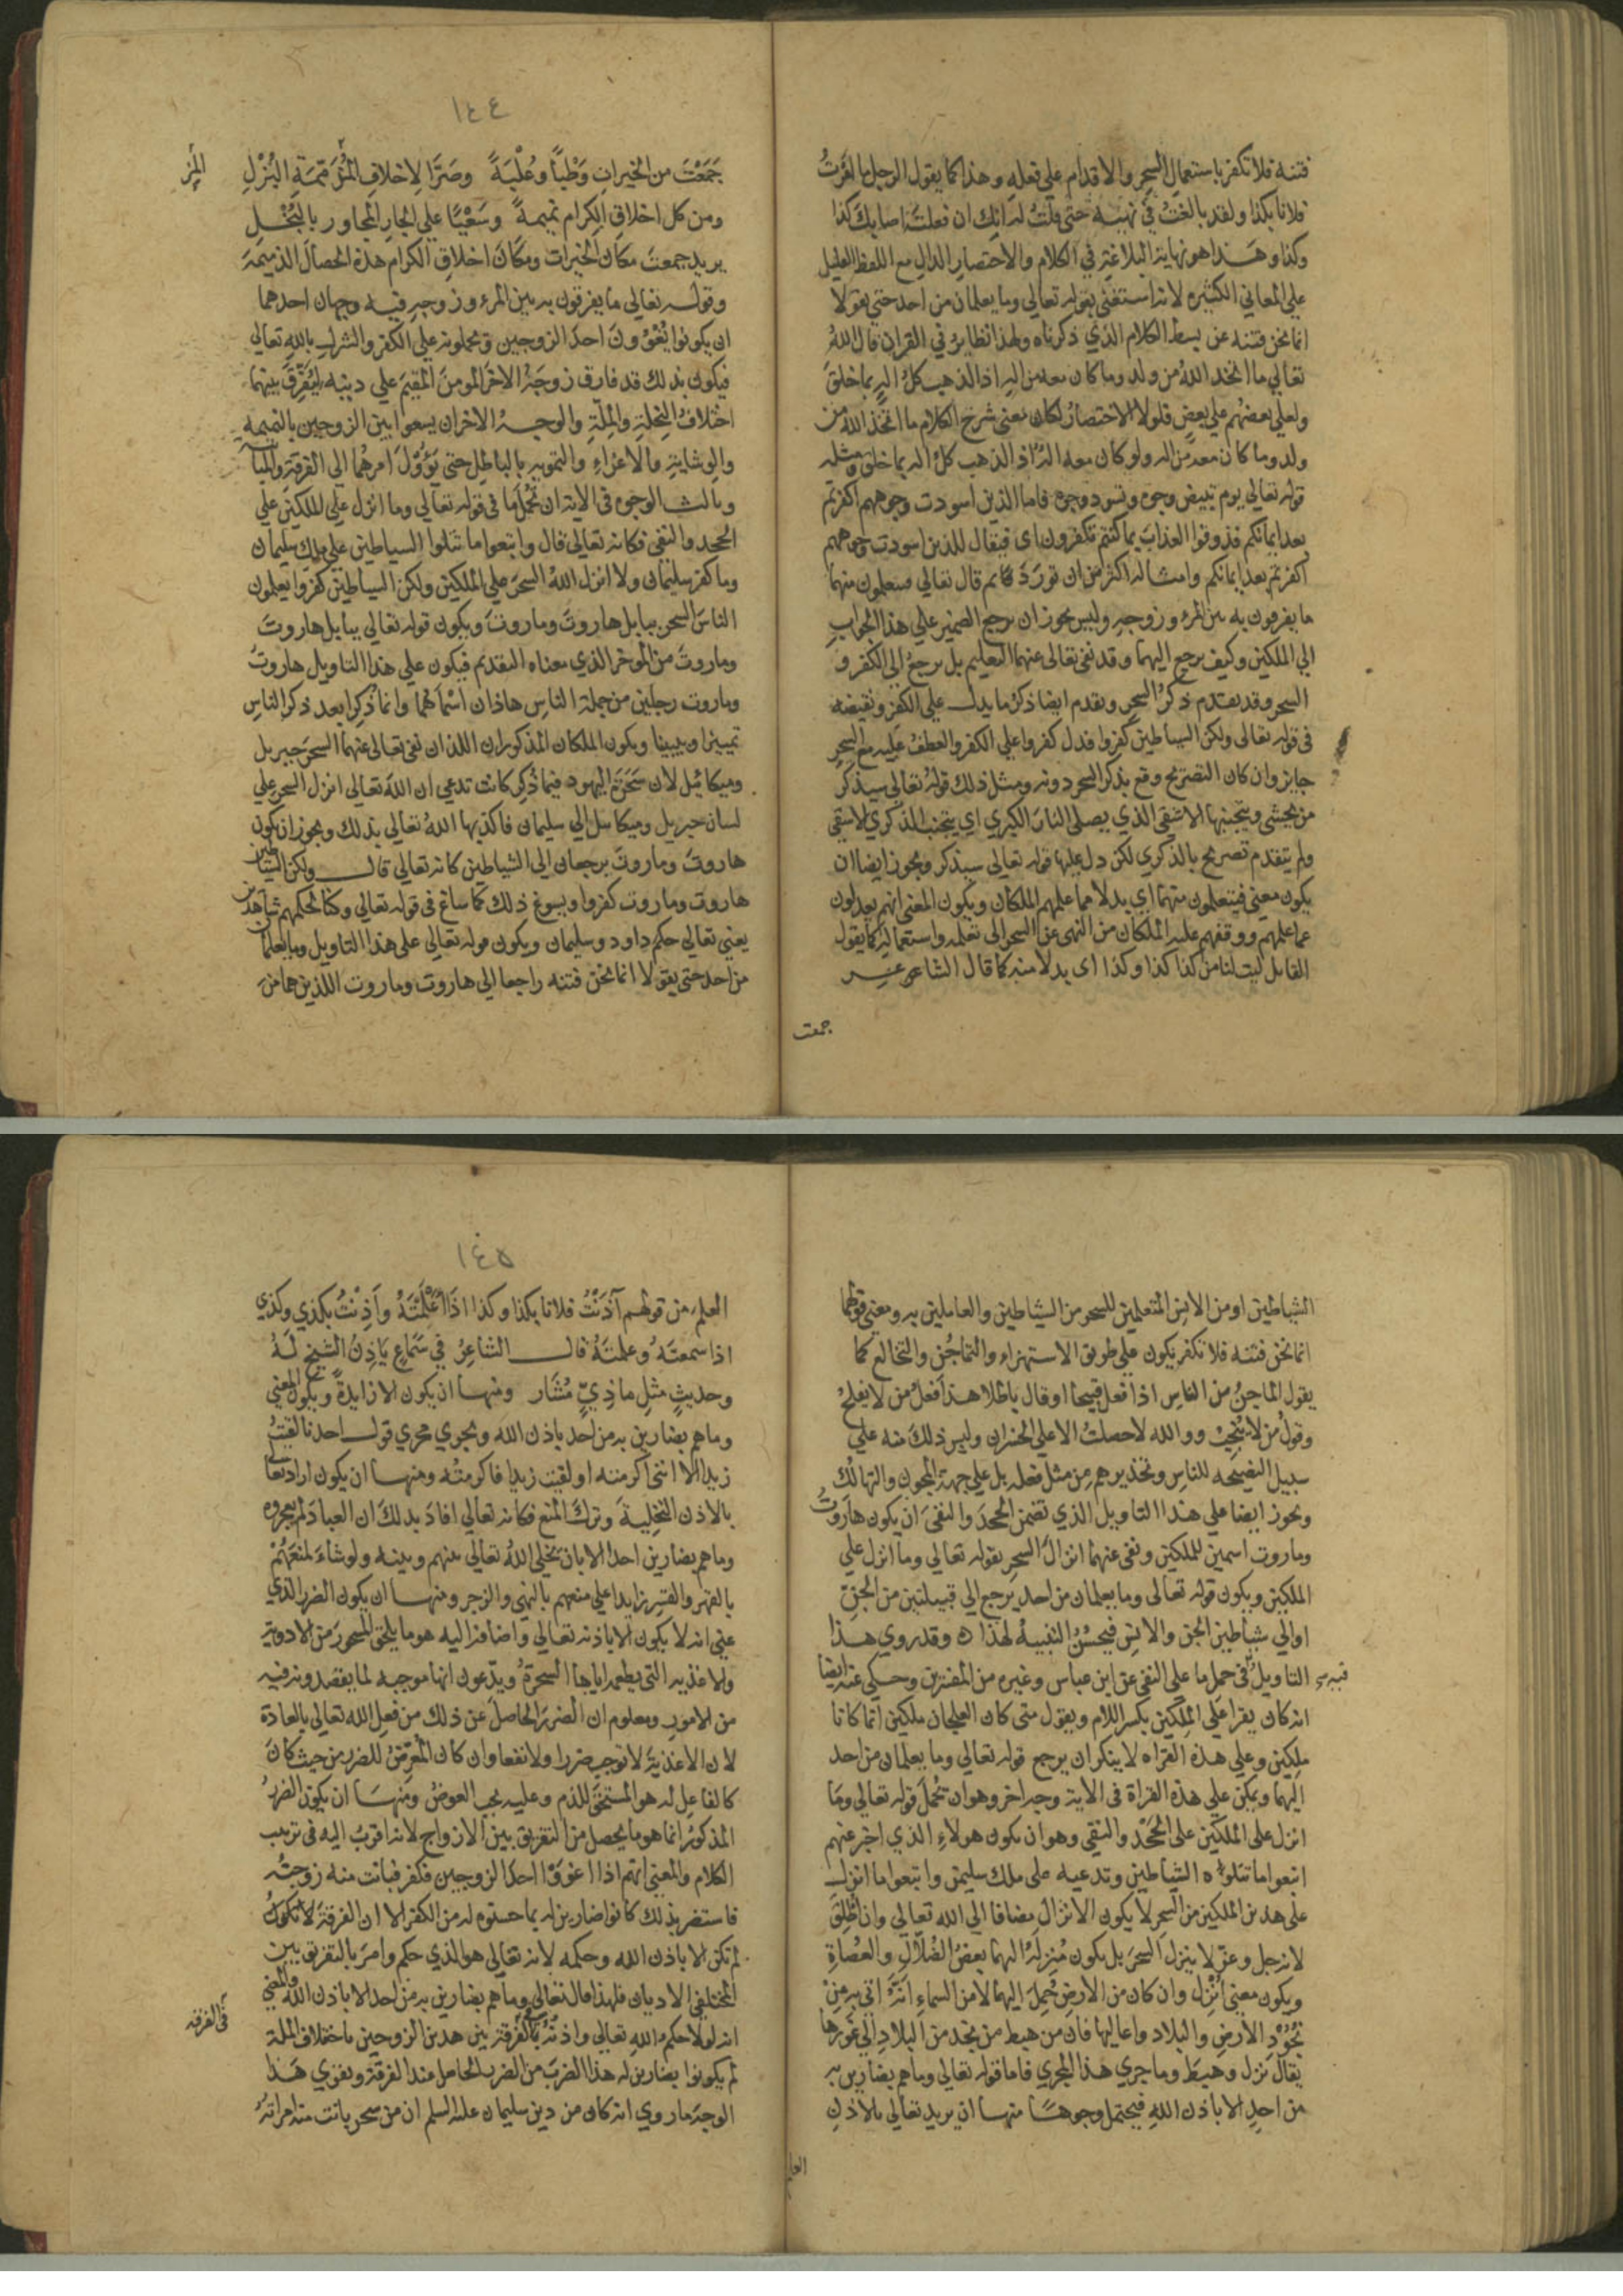 فتنه فلا تكفر باستعمال السحر والاقدام على فعله وهذا كما يقول الرجل ما امرت
فلانا بكذا ولقد بالغت في نهيه حتى قلت له انك ان فعلته اصابك كذا
وكذا وهذا هو نهاية البلاغة في الكلام والاختصار الدال مع اللفظ القليل
على المعاني الكثيره لانه استغنى بقوله تعالى وما يعلمان من احد حتى يقولا
انما نحن فتنه عن بسط الكلام الذي ذكرناه ولهذا نظاير في القران قال الله
تعالى ما اتخذ الله من ولد وما كان معه من اله اذا لذهب كل اله بما خلق
ولعلى بعضهم على بعض فلولا الاختصار لكان معنى شرح الكلام ما اتخذ الله من
ولد وما كان معه من اله ولو كان معه اله اذا لذهب كل اله بما خلق ومثله
قوله تعالى يوم تبيض وجوه وتسود وجوه فاما الذين اسودت وجوههم اكفرتم
بعد ايمانكم فذوقوا العذاب بما كنتم تكفرون اى فيقال للذين اسودت وجوههم
اكفرتم بعد ايمانكم وامثاله اكثر من ان تورد ثم قال تعالى فيتعلمون منهما
ما يفرقون به بين المرء وزوجه وليس يجوز ان يرجع الضمير على هذا الجواب
الى الملكين وكيف يرجع اليهما وقد نفى تعالى عنهما التعليم بل يرجع الى الكفر و
السحر وقد تقدم ذكر السحر وتقدم ايضا ذكر ما يدل على الكفر ويقتضيه
فى قوله تعالى ولكن الشياطين كفروا فدل كفروا على الكفر والعطف عليه مع السحر
جايز وان كان التصريح وقع بذكر السحر دونه ومثل ذلك قوله تعالى سيذكر
من يخشى ويتجنبها الاشقى الذي يصلى النار الكبرى اي يتجنب الذكرى الاشقى
ولم يتقدم تصريح بالذكرى لكن دل عليها قوله تعالى سيذكر ويجوز ايضا ان
يكون معنى فيتعلمون منهما اي بدلا مما علمهم الملكان ويكون المعنى انهم يعدلون
عما علمهم ووقفهم عليه الملكان من النهى عن السحر الى تعلمه واستعماله كما يقول
القايل ليت لنا من كذا كذا وكذا اى بدلا منه كما قال الشاعر
جمعت
١٤٤
جمعت من الخيرات وطبا وعلبة وصرا لاخلاف المزممة البزل
ومن كل اخلاق الكرام نميمة وسعيا على الجار المجاور بالبخل
يريد جمعت مكان الخيرات ومكان اخلاق الكرام هذه الخصال الذميمة
وقوله تعالى ما يفرقون به بين المرء وزوجه فيه وجهان احدهما
ان يكونوا يغوون احد الزوجين ويحملونه على الكفر والشرك بالله تعالى
فيكون بذلك قد فارق زوجه الاخر المومن المقيم على دينه ليفرق بينهما
اختلاف النحلة والملة والوجه الاخر ان يسعوا بين الزوجين بالنميمه
والوشاية والاغراء والتمويه بالباطل حتى يؤول امرهما الى الفرقة والمباينة
وثالث الوجوه فى الاية ان تحمل ما فى قوله تعالى وما انزل على الملكين على
الجحد والنفى فكانه تعالى قال واتبعوا ما تتلوا الشياطين على ملك سليمان
وما كفر سليمان ولا انزل الله السحر على الملكين ولكن الشياطين كفروا يعلمون
الناس السحر ببابل هاروت وماروت ويكون قوله تعالى ببابل هاروت
وماروت من الموخر الذي معناه التقديم فيكون على هذا التاويل هاروت
وماروت رجلين من جملة الناس هاذان اسماهما وانما ذكرا بعد ذكر الناس
تمييزا وتبيينا ويكون الملكان المذكوران اللذان نفى تعالى عنهما السحر جبريل
وميكائيل لان سحرة اليهود فيما ذكر كانت تدعي ان الله تعالى انزل السحر على
لسان جبريل وميكائيل الى سليمان فاكذبها الله تعالى بذلك ويجوز ان يكون
هاروت وماروت يرجعان الى الشياطين كانه تعالى قال ولكن الشياطين
هاروت وماروت كفروا ويسوغ ذلك كما ساغ فى قوله تعالى وكنا لحكمهم شاهدين
يعنى تعالى حكم داود وسليمان ويكون قوله تعالى على هذا التاويل وما يعلمان
من احد حتى يقولا انما نحن فتنه راجعا الى هاروت وماروت اللذين هما من
الشياطين او من الانس المتعلمين للسحر من الشياطين والعاملين به ومعنى قولهما
انما نحن فتنه فلا تكفر يكون على طريق الاستهزاء والتماجن والتخالع كما
يقول الماجن من الناس اذا فعل قبيحا او قال باطلا هذا فعل من لا يفلح
وقول من لا ينجب ووالله لا حصلت الا على الخسران وليس ذلك منه على
سبيل النصيحه للناس وتحذيرهم من مثل فعله بل على جهة المجون والتهالك
ويجوز ايضا على هذا التاويل الذي تضمن الجحد والنفى ان يكون هاروت
وماروت اسمين للملكين ونفى عنهما انزال السحر بقوله تعالى وما انزل على
الملكين ويكون قوله تعالى وما يعلمان من احد يرجع الى قبيلتين من الجن
او الى شياطين الجن والانس فيحسن التثنية لهذا ه وقد روي هذا
التاويل فى حمل ما على النفى عن ابن عباس وغيره من المفسرين وحكي عنه ايضا
انه كان يقرا على الملكين بكسر اللام ويقول متى كان العلجان ملكين انما كانا
ملكين وعلى هذه القراه لا ينكر ان يرجع قوله تعالى وما يعلمان من احد
اليهما ويمكن على هذه القراة فى الاية وجه اخر وهو ان تحمل قوله تعالى وما
انزل على الملكين على الجحد والنفى وهو ان يكون هولاء الذي اخبر عنهم
اتبعوا ما تتلوه الشياطين وتدعيه على ملك سليمن واتبعوا ما انزل
على هذين الملكين من السحر لا يكون الانزال مضافا الى الله تعالى وان اطلق
لانه جل وعز لا ينزل السحر بل يكون منزله اليهما بعض الضلال والعصاة
ويكون معنى انزل وان كان من الارض حمل اليهما لا من السماء انه اتى به من
نجود الارض والبلاد واعاليها فان من هبط من نجد من البلاد الى غورها
يقال نزل وهبط وما جرى هذا المجرى فاما قوله تعالى وما هم بضارين به
من احد الا باذن الله فيحتمل وجوها منها ان يريد تعالى بالاذن
العلم
١٤٥
العلم من قولهم آذنت فلانا بكذا وكذا اذا اعلمته واذنت بكذي وكذي
اذا سمعته وعلمته قال الشاعر في سماع ياذن الشيخ له
وحديث مثل ماذي مشار ومنها ان يكون الا زايدة ويكون المعنى
وما هم بضارين به من احد باذن الله ويجري مجرى قول احدنا لقيت
زيدا الا انني اكرمته او لقيت زيدا فاكرمته ومنها ان يكون اراد تعالى
بالاذن التخلية وترك المنع فكانه تعالى افاد بذلك ان العباد لم يعجزوه
وما هم بضارين احدا الا بان يخلى الله تعالى بينهم وبينه ولو شاء لمنعهم
بالقهر والقسر زايدا على منعهم بالنهى والزجر ومنها ان يكون الضرر الذي
عنى انه لا يكون الا باذنه تعالى واضافه اليه هو ما يلحق المسحور من الادوية
والاغذيه التى يطعمه اياها السحرة ويدعون انها موجبه لما يقصدونه فيه
من الامور ومعلوم ان الضرر الحاصل عن ذلك من فعل الله تعالى بالعادة
لان الاغذية لا توجب ضررا ولا نفعا وان كان المعرض للضرر من حيث كان
كالفاعل له هو المستحق للذم وعليه يجب العوض ومنها ان يكون الضرر
المذكور انما هو ما يحصل من التفريق بين الازواج لانه اقرب اليه فى ترتيب
الكلام والمعنى انهم اذا اغووا احد الزوجين فكفر فبانت منه زوجته
فاستضر بذلك كانوا ضارين له بما حسنوه له من الكفر الا ان الفرقة لا تكون
لم تكن الا باذن الله وحكمه لانه تعالى هو الذي حكم وامر بالتفريق بين
المختلفى الاديان فلهذا قال تعالى وما هم بضارين به من احد الا باذن الله والمعنى
انه لولا حكم الله تعالى واذنه بالفرقة بين هذين الزوجين باختلاف الملة
لم يكونوا بضارين له هذا الضرب من الضرر الحاصل عند الفرقة ويقوي هذا
الوجه ما روي انه كان من دين سليمان عليه السلم ان من سحر بانت منه امراته
فى الفرقه